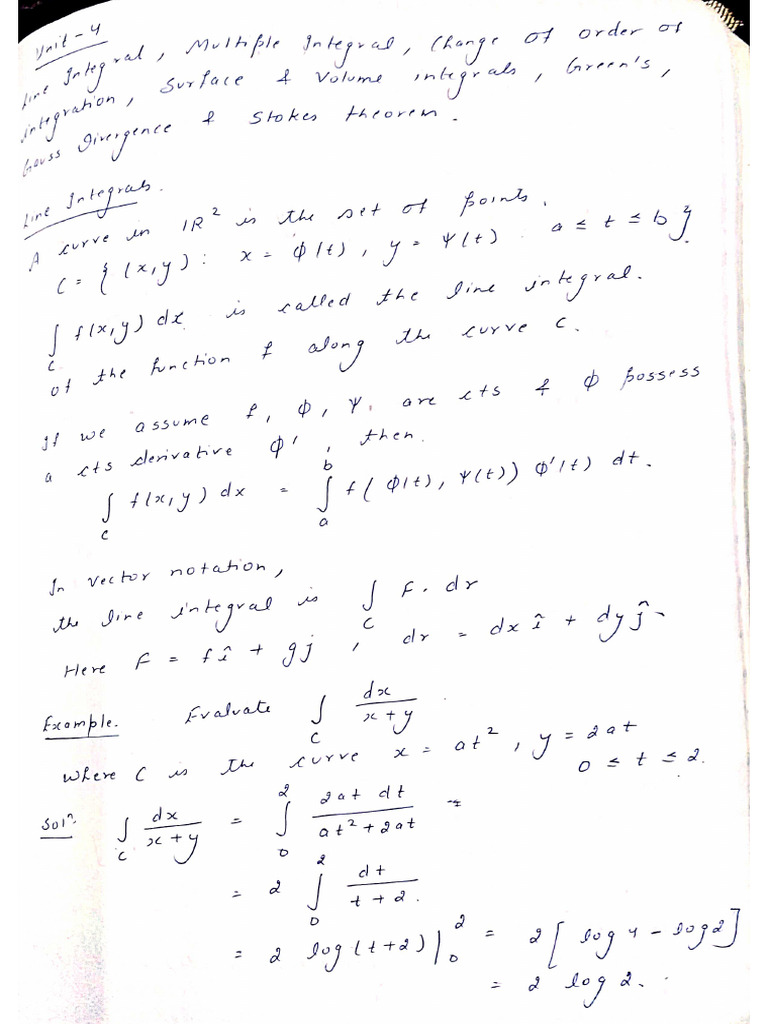 Unit - 4
Line Integral, Multiple Integral, Change of order of
integration, Surface & Volume integrals, Green's,
Gauss Divergence & Stokes theorem.
Line Integrals.
A curve in IR² is the set of points.
C = { (x,y) : x = φ(t), y = ψ(t) a ≤ t ≤ b }
∫_C f(x,y) dx is called the line integral.
of the function f along the curve C.
If we assume f, φ, ψ are cts & φ possess
a cts derivative φ', then.
∫_C f(x,y) dx = ∫_a^b f( φ(t), ψ(t)) φ'(t) dt.
In vector notation,
the line integral is ∫_C F. dr
Here F = fî + gj , dr = dx î + dy ĵ -
Example. Evaluate ∫_C dx/(x+y)
where C is the curve x = at², y = 2at
0 ≤ t ≤ 2.
Solⁿ. ∫_C dx/(x+y) = ∫_0^2 2at dt/(at²+2at)
= 2 ∫_0^2 dt/(t+2).
= 2 log(t+2)|_0^2 = 2[ log 4 - log 2]
= 2 log 2.